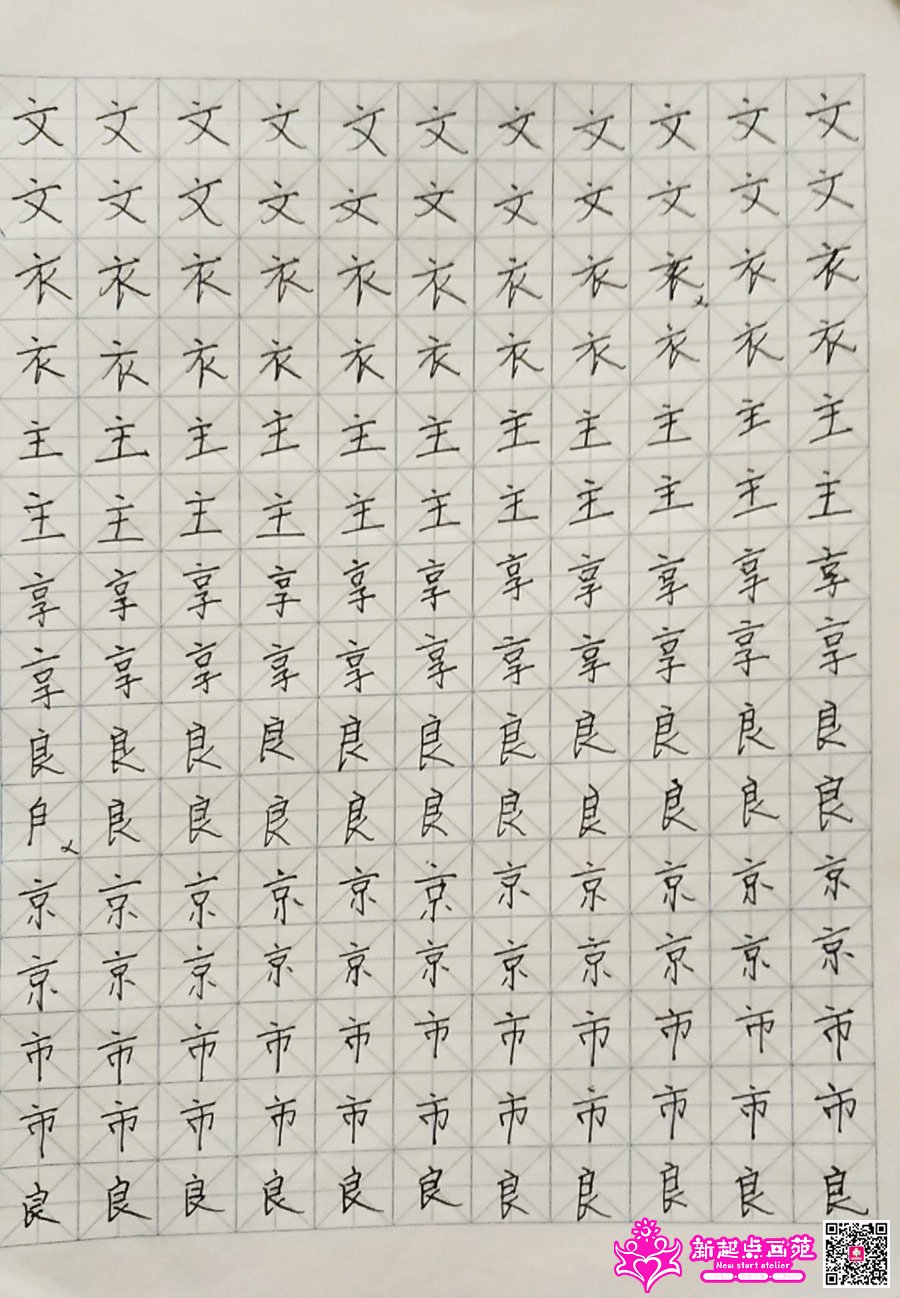 文文文文文文文文文文文
文文文文文文文文文文文
衣衣衣衣衣衣衣衣衣衣衣
衣衣衣衣衣衣衣衣衣衣衣
主主主主主主主主主主主
主主主主主主主主主主主
享享享享享享享享享享享
享享享享享享享享享享享
良良良良良良良良良良良
良良良良良良良良良良
京京京京京京京京京京京
京京京京京京京京京京京
市市市市市市市市市市市
市市市市市市市市市市市
良良良良良良良良良良良
新起点画苑
New start atelier